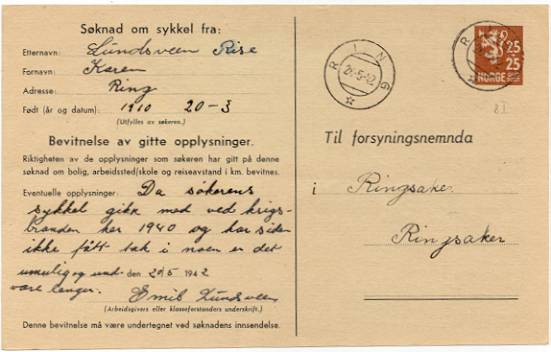 Søknad om sykkel fra:
Etternavn: Lundsveen Rise
Fornavn: Karen
Adresse: Ring
Født (år og datum): 1910 20-3
(Utfylles av søkeren.)
Bevitnelse av gitte opplysninger.
Riktigheten av de opplysninger som søkeren har gitt på denne
søknad om bolig, arbeidssted/skole og reiseavstand i km. bevitnes.
Eventuelle opplysninger: Da søkerens
sykkel gikk med ved krigs-
branden her 1940 og har siden
ikke fått tak i noen er det
umulig og und- den 20/5 1942
være lenger. Emil Lundsveen
(Arbeidsgivers eller klasseforstanders underskrift.)
Denne bevitnelse må være undertegnet ved søknadens innsendelse.
RING
5-42
25 25
25
NORGE
Til forsyningsnemnda
i Ringsaker
Ringsaker